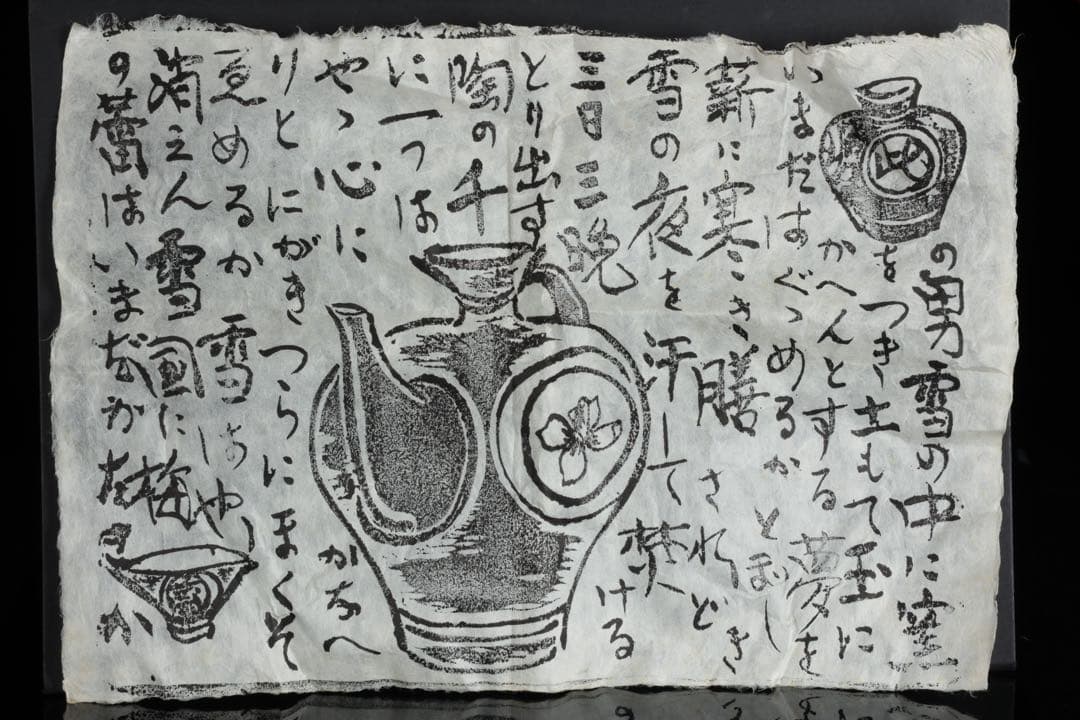 此の男雪の中に窯
をつき土もて玉に
かへんとする夢を
いまだはぐゝめるか とぼしき
薪に寒 膳 されど
雪の夜を汗して焚ける
三日三晩
とり出す
陶の千
に一つは
やゝ心に かなへ
りとにがきつらにほくそ
めるか 雪はや
消えん 雪国に梅
の蕾はいまだかたきか